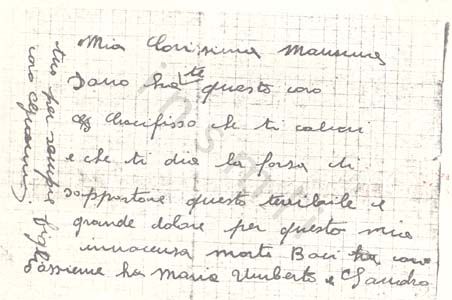 Mia Carissima Mammina
Dono ha te questo caro
Crocifisso che ti calmi
e che ti dia la forza di
sopportare questo terribile e
grande dolore per questa mia
innocenza morte Baci caro
assieme ha Maria Umberto e Sandro
tuo per sempre figlio
caro